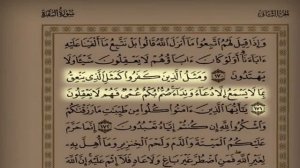 سُورَةُ البَقَرَةِ
وَإِذَا قِيلَ لَهُمُ ٱتَّبِعُوا۟ مَآ أَنزَلَ ٱللَّهُ قَالُوا۟ بَلْ نَتَّبِعُ مَآ أَلْفَيْنَا عَلَيْهِ
ءَابَآءَنَآ أَوَلَوْ كَانَ ءَابَآؤُهُمْ لَا يَعْقِلُونَ شَيْـًٔا وَلَا
يَهْتَدُونَ ١٧٠ وَمَثَلُ ٱلَّذِينَ كَفَرُوا۟ كَمَثَلِ ٱلَّذِى يَنْعِقُ
بِمَا لَا يَسْمَعُ إِلَّا دُعَآءً وَنِدَآءً صُمٌّۢ بُكْمٌ عُمْىٌ فَهُمْ لَا يَعْقِلُونَ
١٧١ يَـٰٓأَيُّهَا ٱلَّذِينَ ءَامَنُوا۟ كُلُوا۟ مِن طَيِّبَـٰتِ مَا رَزَقْنَـٰكُمْ
وَٱشْكُرُوا۟ لِلَّهِ إِن كُنتُمْ إِيَّاهُ تَعْبُدُونَ ١٧٢ إِنَّمَا حَرَّمَ
عَلَيْكُمُ ٱلْمَيْتَةَ وَٱلدَّمَ وَلَحْمَ ٱلْخِنزِيرِ وَمَآ أُهِلَّ بِهِۦ
لِغَيْرِ ٱللَّهِ فَمَنِ ٱضْطُرَّ غَيْرَ بَاغٍ وَلَا عَادٍ فَلَآ إِثْمَ عَلَيْهِ إِنَّ ٱللَّهَ